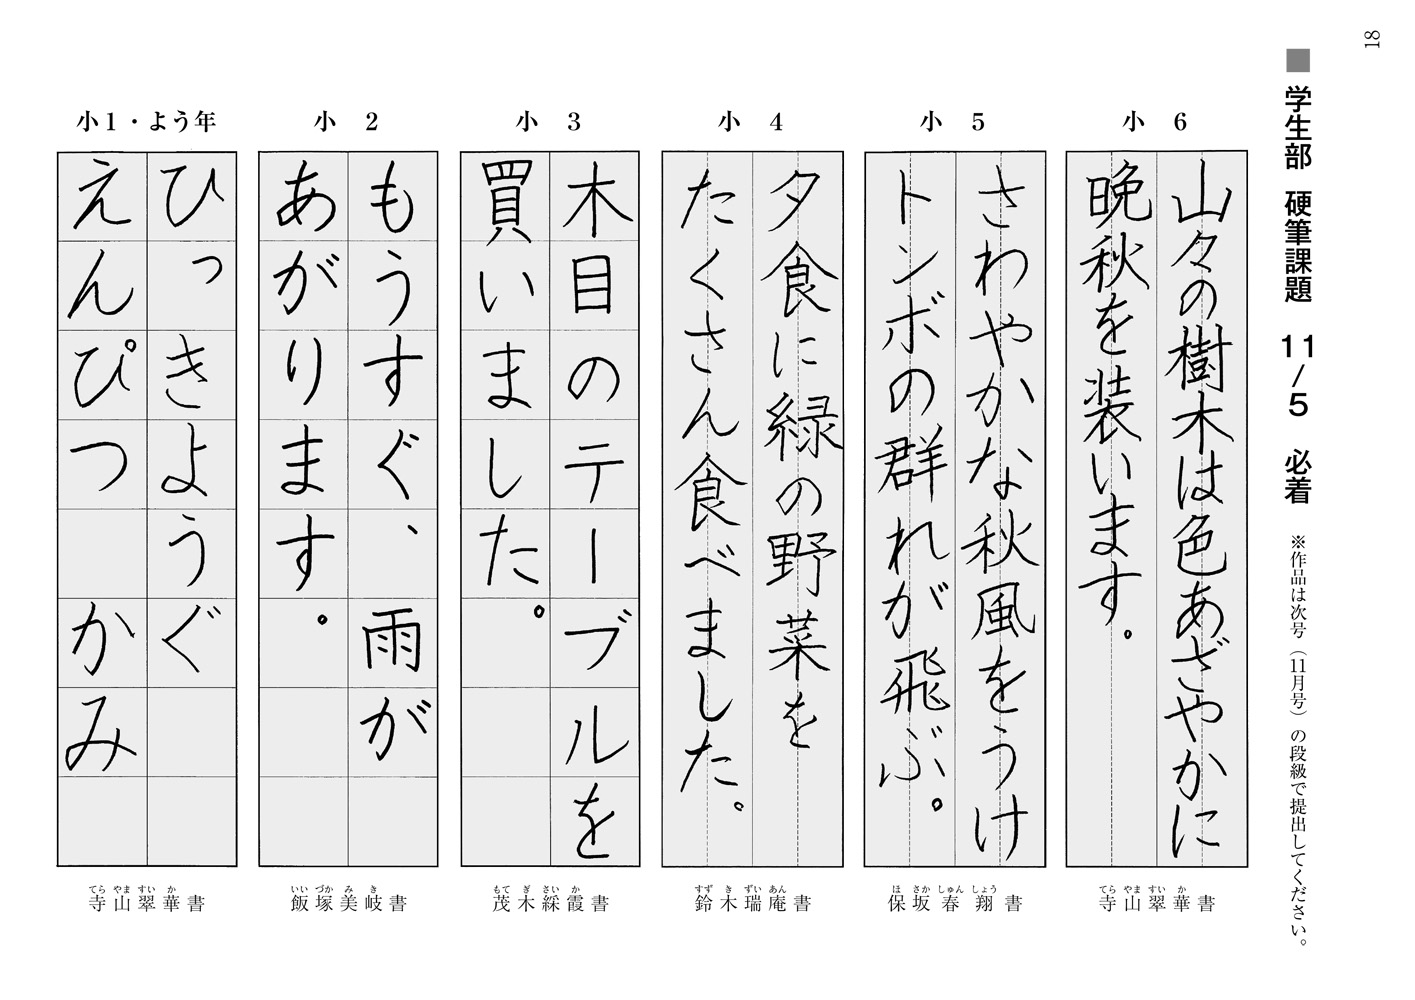 18
■ 学生部 硬筆課題 11/5 必着 ※作品は次号(11月号)の段級で提出してください。
小 6
山々の樹木は色あざやかに
晩秋を装います。
寺山翠華書
てらやますいか
小 5
さわやかな秋風をうけ
トンボの群れが飛ぶ。
保坂春翔書
ほさかしゅんしょう
小 4
夕食に緑の野菜を
たくさん食べました。
鈴木瑞庵書
すずきずいあん
小 3
木目のテーブルを
買いました。
茂木綵霞書
もてぎさいか
小 2
もうすぐ、雨が
あがります。
飯塚美岐書
いいづかみき
小1・よう年
ひっきようぐ
えんぴつ かみ
寺山翠華書
てらやますいか